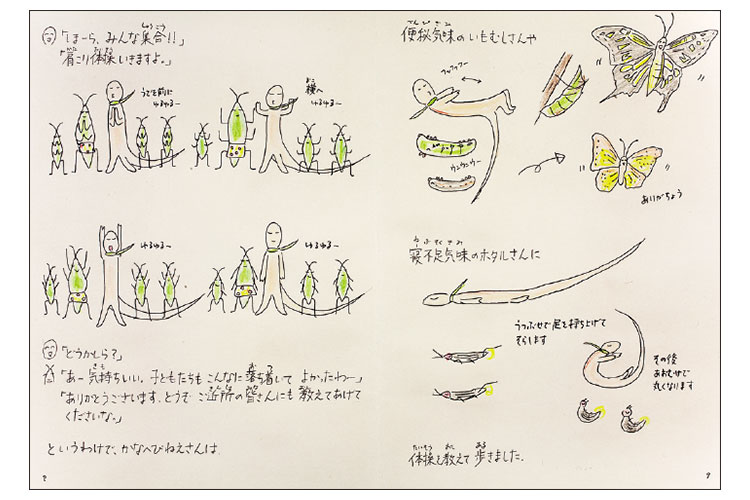 「ほーら、みんな集合!!」
「肩こり体操いきますよ。」
うでを前に
ゆるゆるー
横へ
ゆるゆるー
ゆるゆるー
ゆるゆるー
「どうかしら?」
「あー気持ちいい。子どもたちもこんなに落ち着いて よかったわー」
「ありがとうございます、どうぞ ご近所の皆さんにも教えてあげて
くださいな。」
というわけで、かなへびねえさんは
便秘気味のいもむしさんや
フッフッフー
ウンウンウー
ありがちょう
寝不足気味のホタルさんに
うつぶせで尾を持ち上げて
そらします
その後
あおむけで
丸くなります
体操を教えて 歩きました。